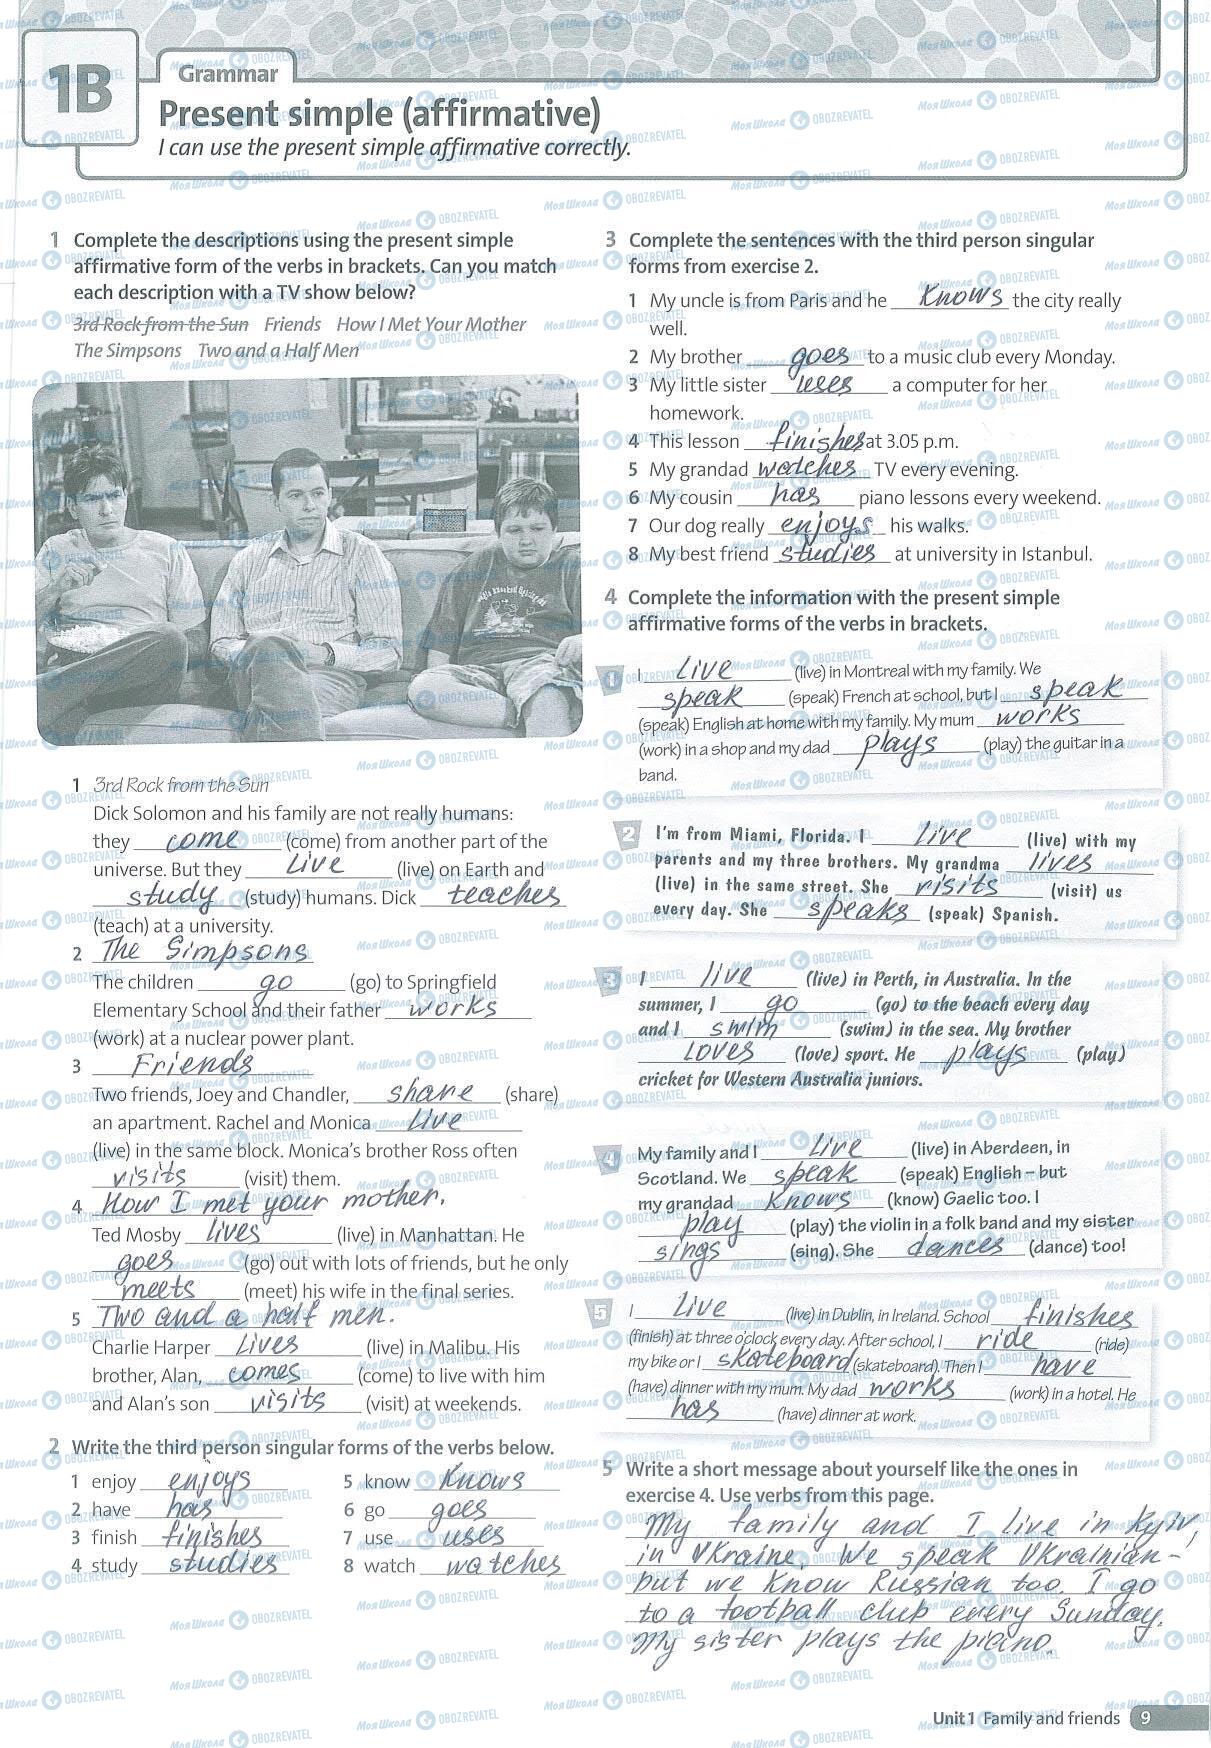 1B
Grammar
Present simple (affirmative)
I can use the present simple affirmative correctly.
1 Complete the descriptions using the present simple
affirmative form of the verbs in brackets. Can you match
each description with a TV show below?
3rd Rock from the Sun Friends How I Met Your Mother
The Simpsons Two and a Half Men
1 3rd Rock from the Sun
Dick Solomon and his family are not really humans:
they come (come) from another part of the
universe. But they live (live) on Earth and
study (study) humans. Dick teaches
(teach) at a university.
2 The Simpsons
The children go (go) to Springfield
Elementary School and their father works
(work) at a nuclear power plant.
3 Friends
Two friends, Joey and Chandler, share (share)
an apartment. Rachel and Monica live
(live) in the same block. Monica's brother Ross often
visits (visit) them.
4 How I met your mother.
Ted Mosby lives (live) in Manhattan. He
goes (go) out with lots of friends, but he only
meets (meet) his wife in the final series.
5 Two and a half men.
Charlie Harper lives (live) in Malibu. His
brother, Alan, comes (come) to live with him
and Alan's son visits (visit) at weekends.
2 Write the third person singular forms of the verbs below.
1 enjoy enjoys
2 have has
3 finish finishes
4 study studies
5 know knows
6 go goes
7 use uses
8 watch watches
3 Complete the sentences with the third person singular
forms from exercise 2.
1 My uncle is from Paris and he knows the city really
well.
2 My brother goes to a music club every Monday.
3 My little sister uses a computer for her
homework.
4 This lesson finishes at 3.05 p.m.
5 My grandad watches TV every evening.
6 My cousin has piano lessons every weekend.
7 Our dog really enjoys his walks.
8 My best friend studies at university in Istanbul.
4 Complete the information with the present simple
affirmative forms of the verbs in brackets.
1 I live (live) in Montreal with my family. We
speak (speak) French at school, but I speak
(speak) English at home with my family. My mum works
(work) in a shop and my dad plays (play) the guitar in a
band.
2 I'm from Miami, Florida. I live (live) with my
parents and my three brothers. My grandma lives
(live) in the same street. She visits (visit) us
every day. She speaks (speak) Spanish.
3 I live (live) in Perth, in Australia. In the
summer, I go (go) to the beach every day
and I swim (swim) in the sea. My brother
loves (love) sport. He plays (play)
cricket for Western Australia juniors.
4 My family and I live (live) in Aberdeen, in
Scotland. We speak (speak) English – but
my grandad knows (know) Gaelic too. I
play (play) the violin in a folk band and my sister
sings (sing). She dances (dance) too!
5 I live (live) in Dublin, in Ireland. School finishes
(finish) at three o'clock every day. After school, I ride (ride)
my bike or I skateboard (skateboard). Then I have
(have) dinner with my mum. My dad works (work) in a hotel. He
has (have) dinner at work.
5 Write a short message about yourself like the ones in
exercise 4. Use verbs from this page.
My family and I live in Kyiv,
in Ukraine. We speak Ukrainian –
but we know Russian too. I go
to a football club every Sunday.
My sister plays the piano.
Unit 1 Family and friends 9
Моя Школа OBOZREVATEL